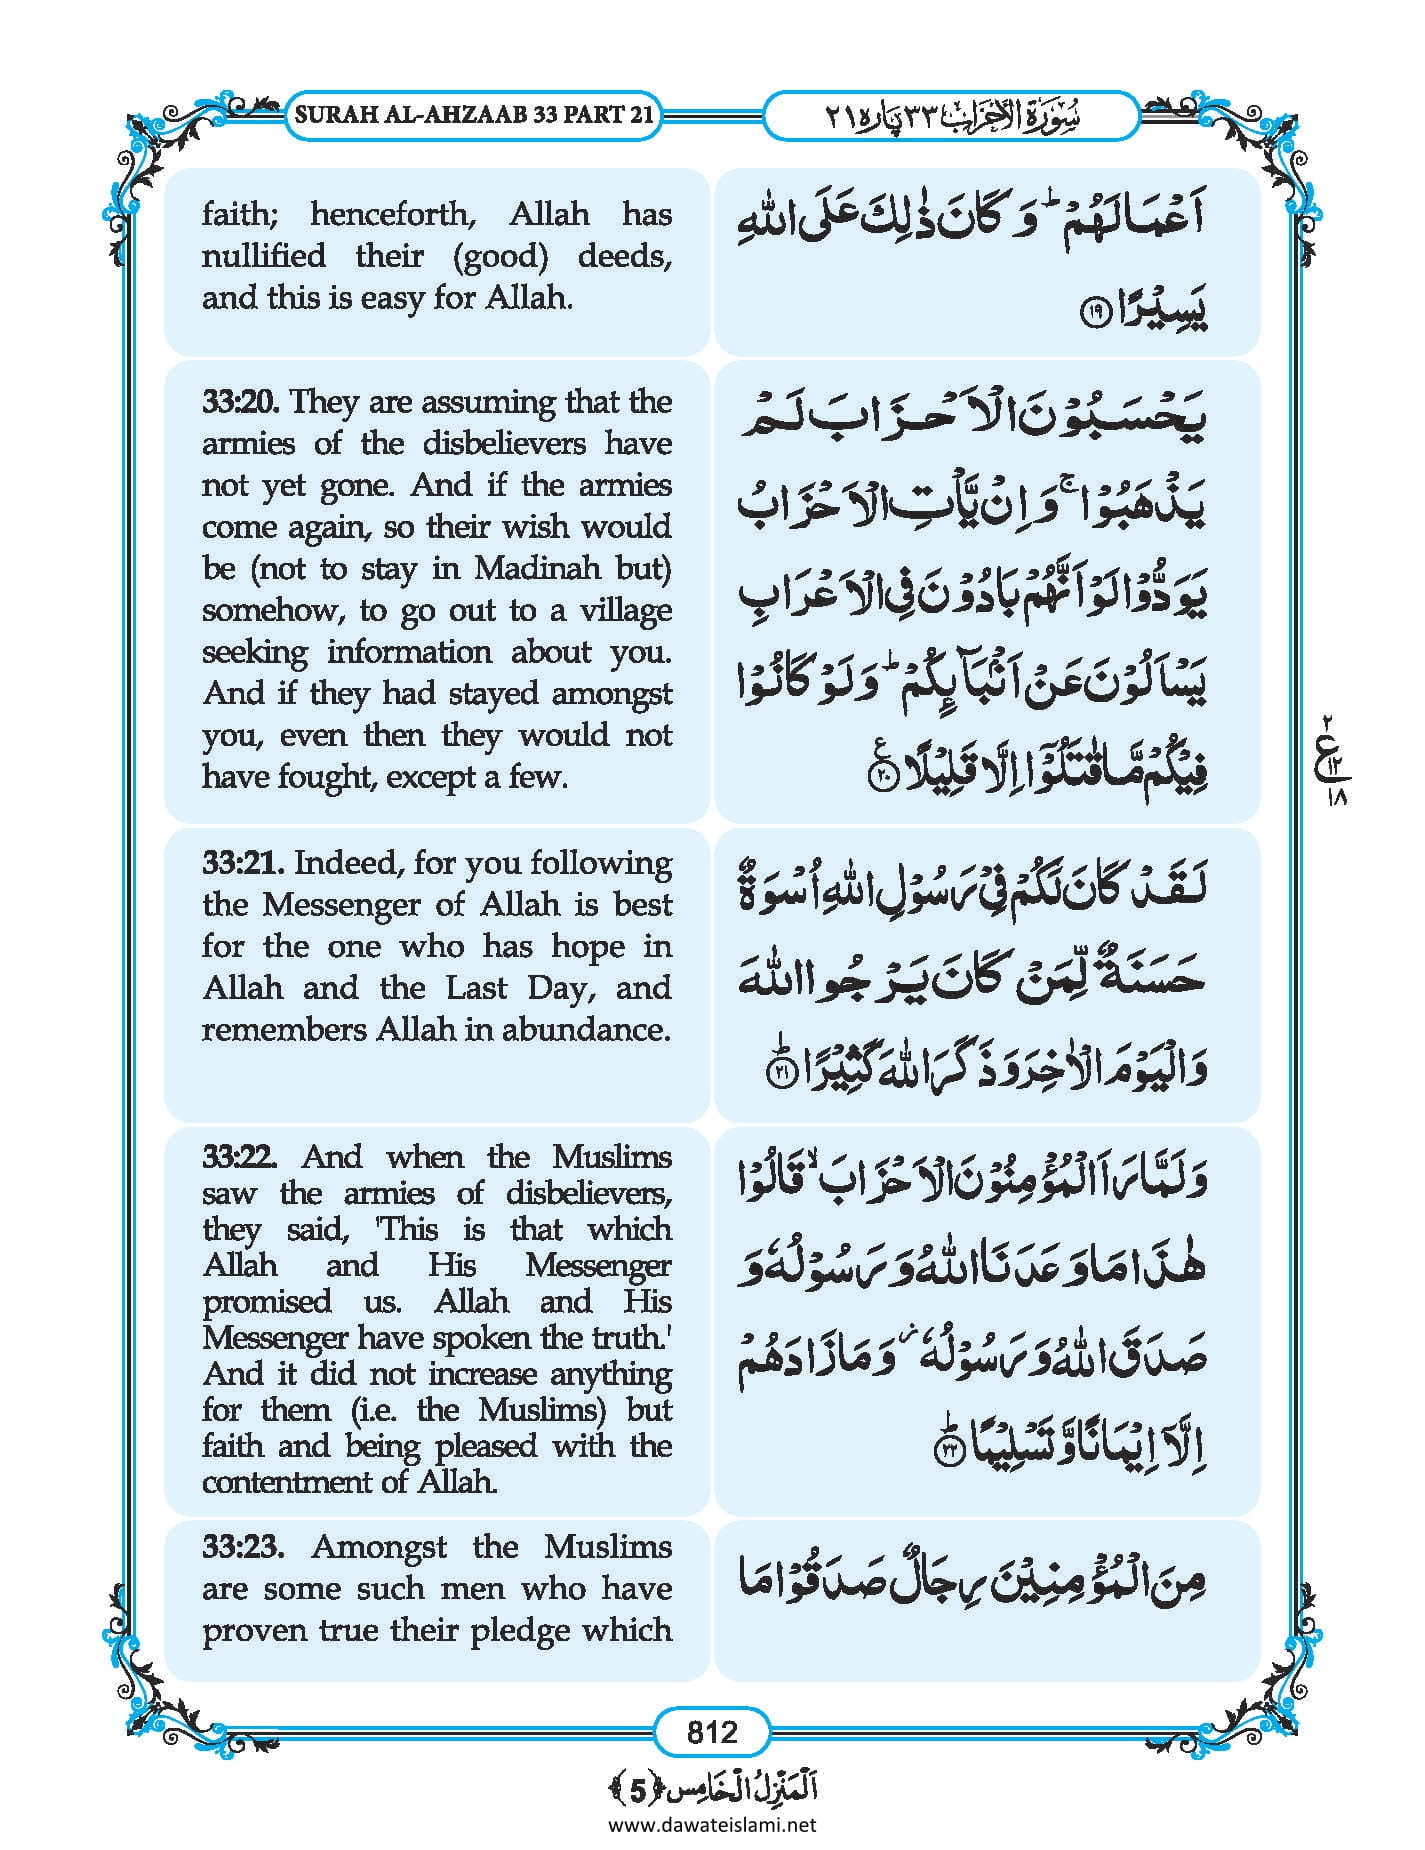 SURAH AL-AHZAAB 33 PART 21
سُوْرَةُ الْاَحْزَاب ٣٣ پارہ ٢١
faith; henceforth, Allah has
nullified their (good) deeds,
and this is easy for Allah.
اَعْمَالَهُمْ ؕ وَ كَانَ ذٰلِكَ عَلَى اللّٰهِ
يَسِيْرًا ﴿١٩﴾
33:20. They are assuming that the
armies of the disbelievers have
not yet gone. And if the armies
come again, so their wish would
be (not to stay in Madinah but)
somehow, to go out to a village
seeking information about you.
And if they had stayed amongst
you, even then they would not
have fought, except a few.
يَحْسَبُوْنَ الْاَحْزَابَ لَمْ
يَذْهَبُوْا ۚ وَ اِنْ يَّاْتِ الْاَحْزَابُ
يَوَدُّوْا لَوْ اَنَّهُمْ بَادُوْنَ فِي الْاَعْرَابِ
يَسْاَلُوْنَ عَنْ اَنْۢبَآىِٕكُمْ ؕ وَ لَوْ كَانُوْا
فِيْكُمْ مَّا قٰتَلُوْۤا اِلَّا قَلِيْلًا ﴿٢٠﴾ ع
٢
ع
١٢
١٨
33:21. Indeed, for you following
the Messenger of Allah is best
for the one who has hope in
Allah and the Last Day, and
remembers Allah in abundance.
لَقَدْ كَانَ لَكُمْ فِيْ رَسُوْلِ اللّٰهِ اُسْوَةٌ
حَسَنَةٌ لِّمَنْ كَانَ يَرْجُوا اللّٰهَ
وَ الْيَوْمَ الْاٰخِرَ وَ ذَكَرَ اللّٰهَ كَثِيْرًا ؕ ﴿٢١﴾
33:22. And when the Muslims
saw the armies of disbelievers,
they said, 'This is that which
Allah and His Messenger
promised us. Allah and His
Messenger have spoken the truth.'
And it did not increase anything
for them (i.e. the Muslims) but
faith and being pleased with the
contentment of Allah.
وَ لَمَّا رَاَ الْمُؤْمِنُوْنَ الْاَحْزَابَ ۙ قَالُوْا
هٰذَا مَا وَعَدَنَا اللّٰهُ وَ رَسُوْلُهٗ وَ
صَدَقَ اللّٰهُ وَ رَسُوْلُهٗ ؗ وَ مَا زَادَهُمْ
اِلَّاۤ اِيْمَانًا وَّ تَسْلِيْمًا ؕ ﴿٢٢﴾
33:23. Amongst the Muslims
are some such men who have
proven true their pledge which
مِنَ الْمُؤْمِنِيْنَ رِجَالٌ صَدَقُوْا مَا
812
اَلْمَنْزِلُ الْخَامِس ﴿5﴾
www.dawateislami.net